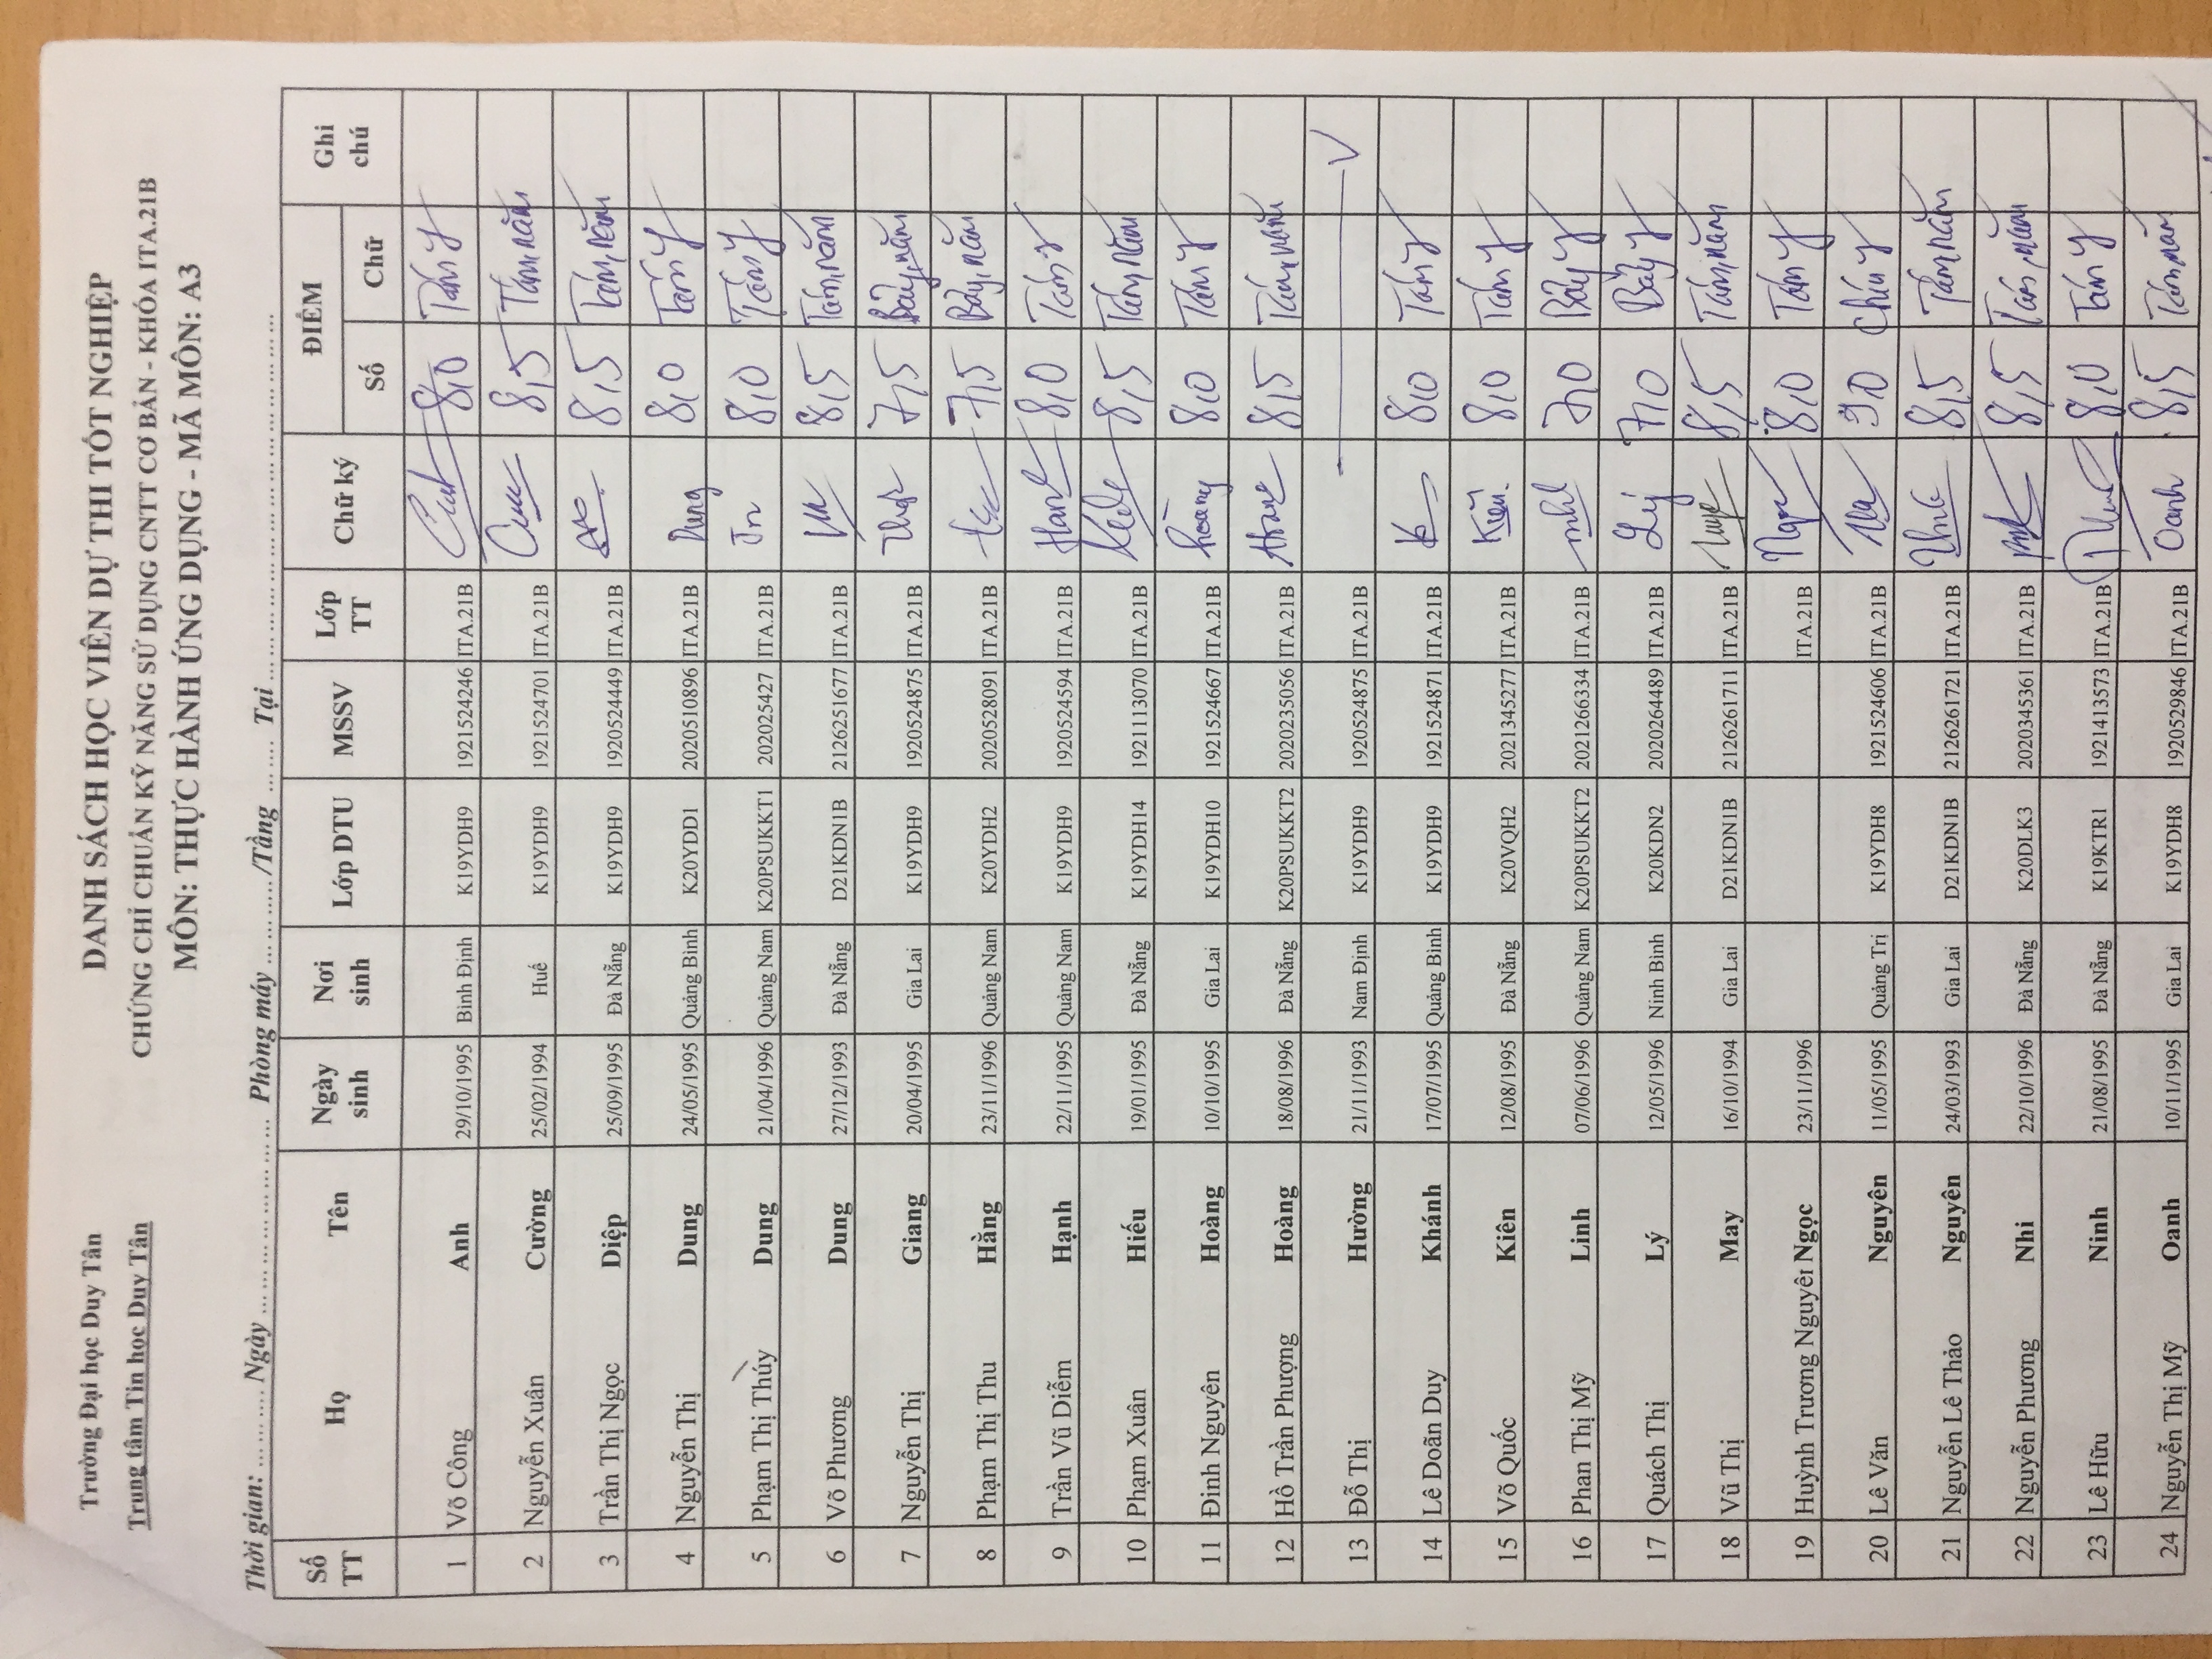 Trường Đại học Duy Tân
Trung tâm Tin học Duy Tân
DANH SÁCH HỌC VIÊN DỰ THI TỐT NGHIỆP
CHỨNG CHỈ CHUẨN KỸ NĂNG SỬ DỤNG CNTT CƠ BẢN - KHÓA ITA.21B
MÔN: THỰC HÀNH ỨNG DỤNG - MÃ MÔN: A3
Thời gian: ... ... ... Ngày ... ... ... ... ... ... Phòng máy ... ... ... /Tầng ... ... ... Tại ... ... ... ... ... ... ... ... ... ...
Số TT Họ Tên Ngày sinh Nơi sinh Lớp DTU MSSV Lớp TT Chữ ký ĐIỂM Số Chữ Ghi chú
1 Võ Công Anh 29/10/1995 Bình Định K19YDH9 1921524246 ITA.21B 8,0 Tám y
2 Nguyễn Xuân Cường 25/02/1994 Huế K19YDH9 1921524701 ITA.21B 8,5 Tám, năm
3 Trần Thị Ngọc Diệp 25/09/1995 Đà Nẵng K19YDH9 1920524449 ITA.21B 8,5 Tám, năm
4 Nguyễn Thị Dung 24/05/1995 Quảng Bình K20YDD1 2020510896 ITA.21B Dung 8,0 Tám y
5 Phạm Thị Thúy Dung 21/04/1996 Quảng Nam K20PSUKKT1 202025427 ITA.21B 8,0 Tám y
6 Võ Phương Dung 27/12/1993 Đà Nẵng D21KDN1B 2126251677 ITA.21B 8,5 Tám, năm
7 Nguyễn Thị Giang 20/04/1995 Gia Lai K19YDH9 1920524875 ITA.21B 7,5 Bảy, năm
8 Phạm Thị Thu Hằng 23/11/1996 Quảng Nam K20YDH2 2020528091 ITA.21B 7,5 Bảy, năm
9 Trần Vũ Diễm Hạnh 22/11/1995 Quảng Nam K19YDH9 1920524594 ITA.21B 8,0 Tám y
10 Phạm Xuân Hiếu 19/01/1995 Đà Nẵng K19YDH14 1921113070 ITA.21B 8,5 Tám, năm
11 Đinh Nguyên Hoàng 10/10/1995 Gia Lai K19YDH10 1921524667 ITA.21B hoàng 8,0 Tám y
12 Hồ Trần Phượng Hoàng 18/08/1996 Đà Nẵng K20PSUKKT2 2020235056 ITA.21B 8,5 Tám, năm
13 Đỗ Thị Hường 21/11/1993 Nam Định K19YDH9 1920524875 ITA.21B V
14 Lê Doãn Duy Khánh 17/07/1995 Quảng Bình K19YDH9 1921524871 ITA.21B 8,0 Tám y
15 Võ Quốc Kiên 12/08/1995 Đà Nẵng K20VQH2 2021345277 ITA.21B Kiên 8,0 Tám y
16 Phan Thị Mỹ Linh 07/06/1996 Quảng Nam K20PSUKKT2 2021266334 ITA.21B 7,0 Bảy y
17 Quách Thị Lý 12/05/1996 Ninh Bình K20KDN2 2020264489 ITA.21B Lý 7,0 Bảy y
18 Vũ Thị May 16/10/1994 Gia Lai D21KDN1B 2126261711 ITA.21B 8,5 Tám, năm
19 Huỳnh Trương Nguyêt Ngọc 23/11/1996 ITA.21B 8,0 Tám y
20 Lê Văn Nguyên 11/05/1995 Quảng Trị K19YDH8 1921524606 ITA.21B 9,0 chín y
21 Nguyễn Lê Thảo Nguyên 24/03/1993 Gia Lai D21KDN1B 2126261721 ITA.21B 8,5 Tám, năm
22 Nguyễn Phương Nhi 22/10/1996 Đà Nẵng K20DLK3 2020345361 ITA.21B 8,5 Tám, năm
23 Lê Hữu Ninh 21/08/1995 Đà Nẵng K19KTR1 1921413573 ITA.21B 8,0 Tám y
24 Nguyễn Thị Mỹ Oanh 10/11/1995 Gia Lai K19YDH8 1920529846 ITA.21B Oanh 8,5 Tám, năm